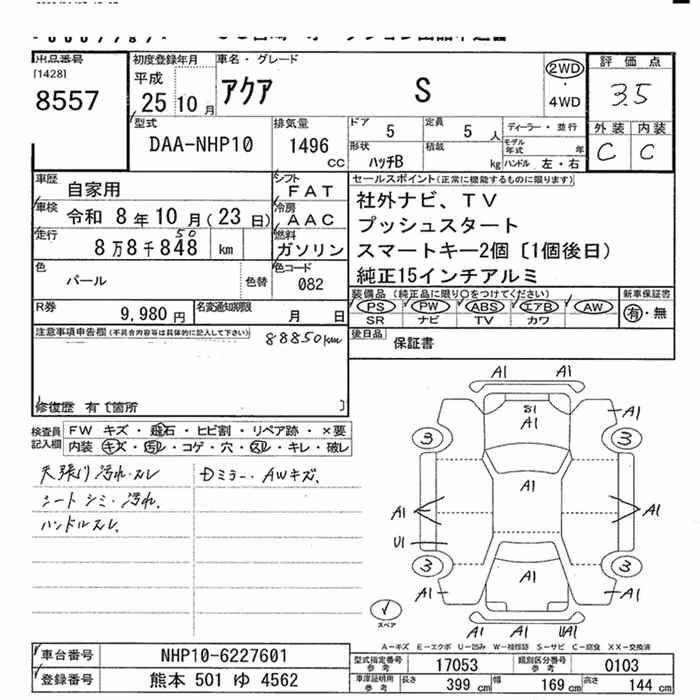 出品番号
[1428]
8557
初度登録年月
平成
25 10 月
車名・グレード
アクア S
2WD
・
4WD
評価点
3.5
外装 内装
C C
型式
DAA-NHP10
排気量
1496
CC
ドア
5
定員
5 人
ディーラー・並行
形状
ハッチB
積載
kg
モデル年式
年
ハンドル 左・右
車歴
自家用
シフト
FAT
車検
令和 8年10月(23日)
冷房
AAC
走行
8万8千848 km
50
燃料
ガソリン
色
パール
色替
色コード
082
R券
9,980 円
名変通知期限
月 日
セールスポイント(正常に機能するものに限ります)
社外ナビ、TV
プッシュスタート
スマートキー2個〔1個後日〕
純正15インチアルミ
装備品(純正品に限り○をつけてください)
PS PW ABS エアB AW
SR ナビ TV カワ
新車保証書
有・無
後日品
保証書
注意事項申告欄(不具合内容等は具体的に記入して下さい)
88850km
修復歴 有〔箇所 〕
検査員
記入欄
FW キズ・飛石・ヒビ割・リペア跡・×要
内装 キズ・汚レ・コゲ・穴・スレ・キレ・破レ
天張り汚れ・スレ
シートシミ・汚れ.
ハンドルスレ.
Dミラー・AWキズ.
A1 A1
B1
A1 A1
3 3
A1
A1 A1
U1
3 3
A1
A1 A1
A1 A1 UA1
スペア
A-キズ E-エクボ U-凹み W-補修跡 S-サビ C-腐食 XX-交換済
車台番号
NHP10-6227601
登録番号
熊本 501 ゆ 4562
型式指定番号
参考
17053
類別区分番号
参考
0103
車庫証明用
参考
長さ 399 cm 幅 169 cm 高さ 144 cm